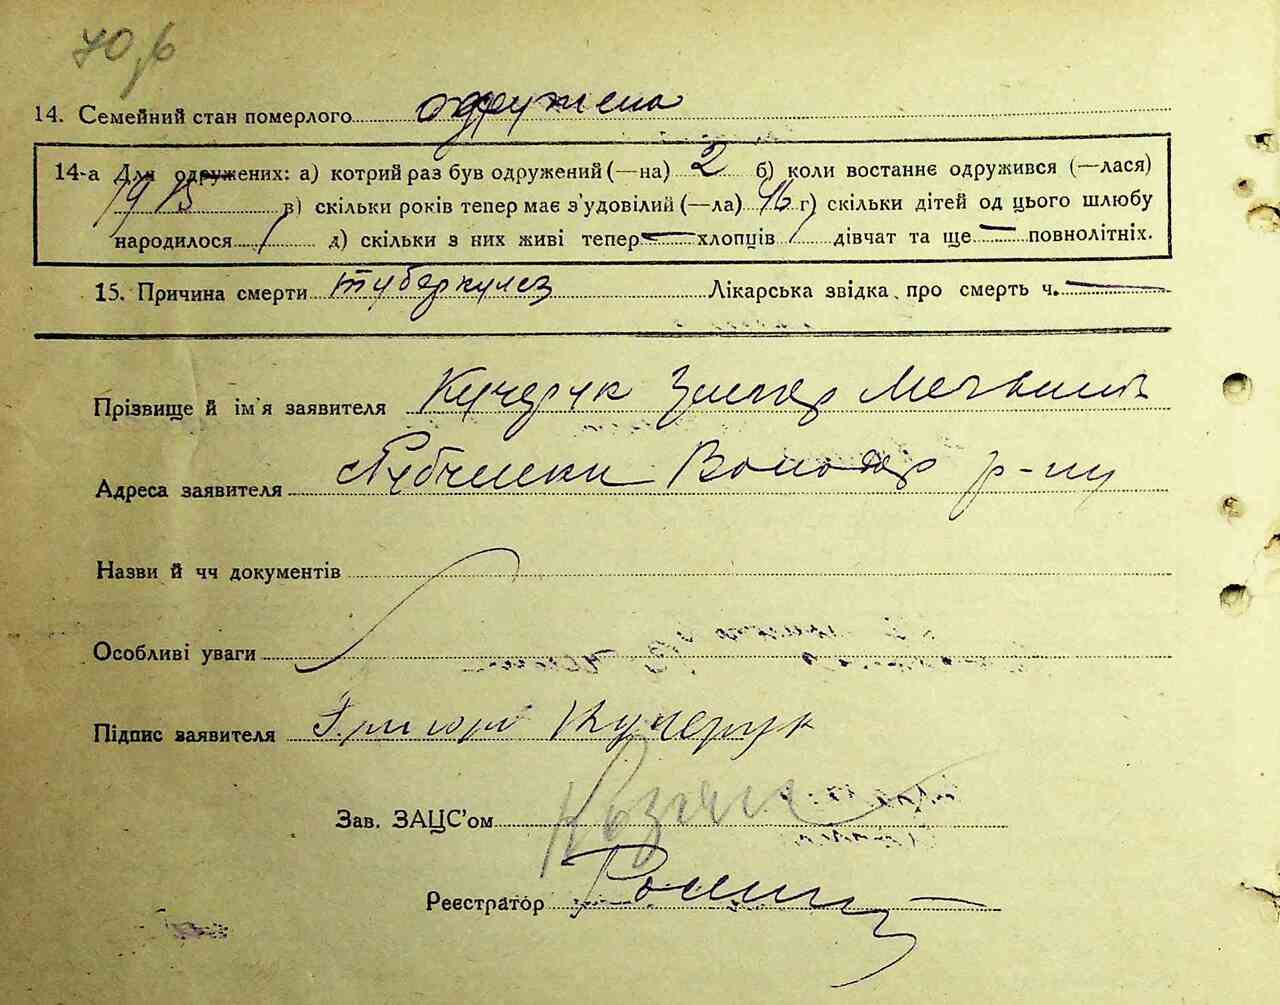 70, б
14. Семейний стан померлого одружена
14-а Для одружених: а) котрий раз був одружений (—на) 2 б) коли востаннє одружився (—лася)
1913 в) скільки років тепер має з'удовілий (—ла) 46 г) скільки дітей од цього шлюбу
народилося 1 д) скільки з них живі тепер — хлопців 1 дівчат та ще — повнолітніх.
15. Причина смерти туберкулез Лікарська звідка про смерть ч. —
Прізвище й ім'я заявителя Кучерук
Адреса заявителя Володар р-ну
Назви й чч документів
Особливі уваги
Підпис заявителя Григорій Кучерук
Зав. ЗАЦС'ом
Реєстратор